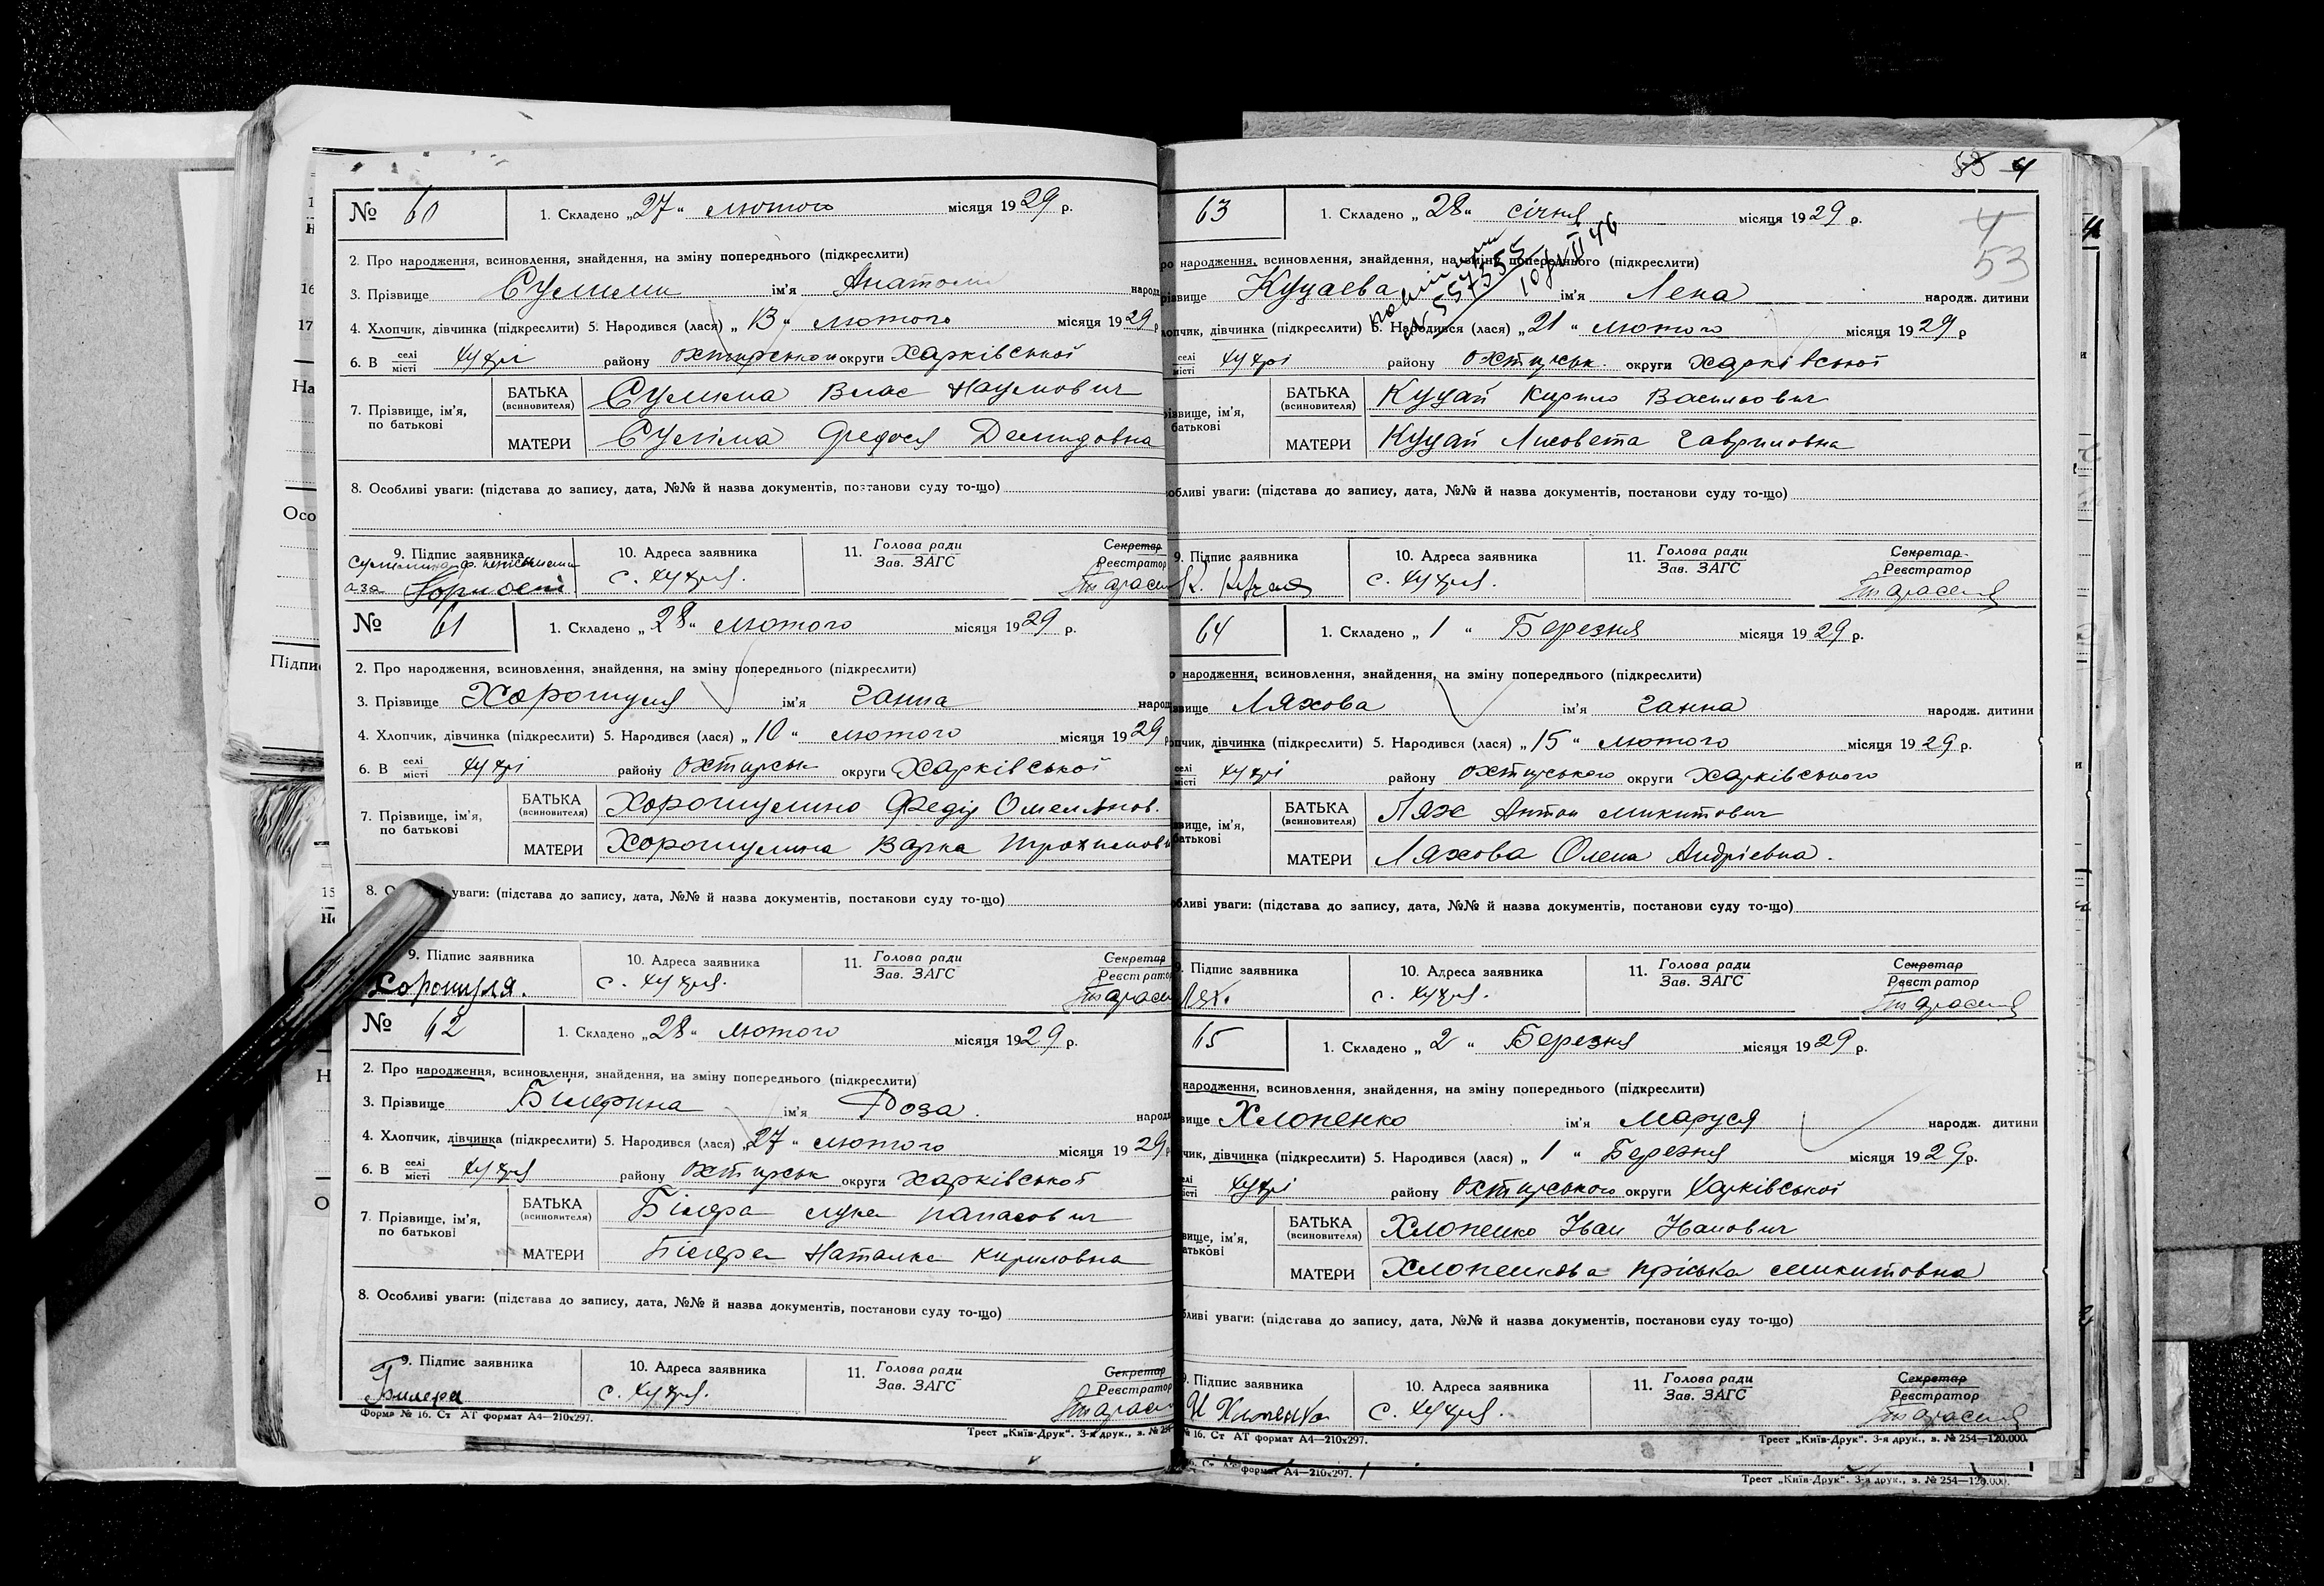 № 60
1. Складено „27" лютого місяця 1929 р.
2. Про народження, всиновлення, знайдення, на зміну попереднього (підкреслити)
3. Прізвище Сулими ім'я Анатолій народ
4. Хлопчик, дівчинка (підкреслити) 5. Народився (лася) „13" лютого місяця 1929 р
6. В селі місті Хухрі району округи Харківської
7. Прізвище, ім'я, по батькові
БАТЬКА (всиновителя) Сулима Влас Наумович
МАТЕРИ Суліма Федося Демидовна
8. Особливі уваги: (підстава до запису, дата, №№ й назва документів, постанови суду то-що)
9. Підпис заявника
10. Адреса заявника
11. Голова ради
Зав. ЗАГС
Секретар
Реєстратор
с. Хухря.
№ 61
1. Складено „28" лютого місяця 1929 р.
2. Про народження, всиновлення, знайдення, на зміну попереднього (підкреслити)
3. Прізвище Хорошуля ім'я Ганна народ
4. Хлопчик, дівчинка (підкреслити) 5. Народився (лася) „10" лютого місяця 1929 р
6. В селі місті Хухрі району Охтирськ округи Харківської
7. Прізвище, ім'я, по батькові
БАТЬКА (всиновителя) Федір Омельянов.
МАТЕРИ Варка
8. уваги: (підстава до запису, дата, №№ й назва документів, постанови суду то-що)
9. Підпис заявника
10. Адреса заявника
11. Голова ради
Зав. ЗАГС
Секретар
Реєстратор
Хорошуля.
с. Хухря.
№ 62
1. Складено „28" лютого місяця 1929 р.
2. Про народження, всиновлення, знайдення, на зміну попереднього (підкреслити)
3. Прізвище ім'я Роза. народ
4. Хлопчик, дівчинка (підкреслити) 5. Народився (лася) „27" лютого місяця 1929
6. В селі місті Хухря району Охтирськ округи Харківської
7. Прізвище, ім'я, по батькові
БАТЬКА (всиновителя) Білера Лука Панасович
МАТЕРИ Білера Наталка Кириловна
8. Особливі уваги: (підстава до запису, дата, №№ й назва документів, постанови суду то-що)
9. Підпис заявника
10. Адреса заявника
11. Голова ради
Зав. ЗАГС
Секретар
Реєстратор
Билера
с. Хухря.
Форма № 16. Ст АТ формат А4—210х297.
Трест „Київ-Друк". 3-я друк., з. № 254
53 4
4
53
63
1. Складено „28" січня місяця 1929 р.
народження, всиновлення, знайдення, на зміну попереднього (підкреслити)
Куцаева ім'я Лена народж. дитини
дівчинка (підкреслити) 5. Народився (лася) „21" лютого місяця 1929 р
селі Хухрі району Охтирськ. округи Харківської
БАТЬКА (всиновителя) Куцай Кирило Васильович
МАТЕРИ Куцай Лисовета Гавриловна
уваги: (підстава до запису, дата, №№ й назва документів, постанови суду то-що)
9. Підпис заявника
10. Адреса заявника
11. Голова ради
Зав. ЗАГС
Секретар
Реєстратор
с. Хухря.
64
1. Складено „1" Березня місяця 1929 р.
народження, всиновлення, знайдення, на зміну попереднього (підкреслити)
Ляхова ім'я Ганна народж. дитини
дівчинка (підкреслити) 5. Народився (лася) „15" лютого місяця 1929 р.
селі Хухрі району Охтирського округи Харківського
БАТЬКА (всиновителя) Лях Антон Микитович
МАТЕРИ Ляхова Олена Андрієвна.
уваги: (підстава до запису, дата, №№ й назва документів, постанови суду то-що)
Підпис заявника
10. Адреса заявника
11. Голова ради
Зав. ЗАГС
Секретар
Реєстратор
Лях.
с. Хухря.
65
1. Складено „2" Березня місяця 1929 р.
народження, всиновлення, знайдення, на зміну попереднього (підкреслити)
Хлопенко ім'я Маруся народж. дитини
дівчинка (підкреслити) 5. Народився (лася) „1" Березня місяця 1929 р.
Хухрі району Охтирського округи Харківської
БАТЬКА (всиновителя) Хлопенко Іван Іванович
МАТЕРИ Хлопенкова Пріська Микитовна
уваги: (підстава до запису, дата, №№ й назва документів, постанови суду то-що)
Підпис заявника
10. Адреса заявника
11. Голова ради
Зав. ЗАГС
Секретар
Реєстратор
И Хлопенко
с. Хухря.
№ 16. Ст АТ формат А4—210х297.
Трест „Київ-Друк". 3-я друк., з. № 254—120.000.
формат А4—210х297.
Трест „Київ-Друк". 3-я друк., з. № 254—120.000.